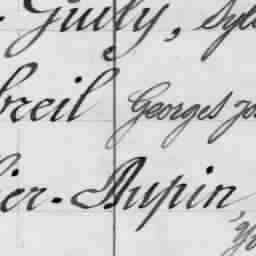 Guily, Syl
breil Georges Jo
ier-Dupin,